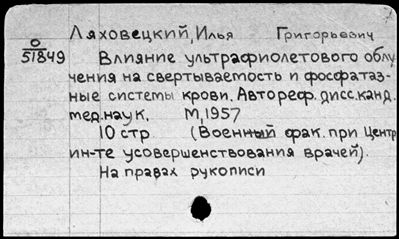 Ляховецкий, Илья Григорьевич
О
51849
Влияние ультрафиолетового облу-
чения на свертываемость и фосфатаз-
ные системы крови. Автореф. дисс. канд.
мед. наук. М, 1957
10 стр (Военный фак. при Центр
ин-те усовершенствования врачей).
На правах рукописи